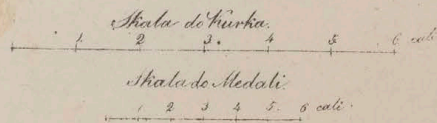 Skala do Kurka.
1 2 3 4 5 6 cali
Skala do Medali.
1 2 3 4 5 6 cali